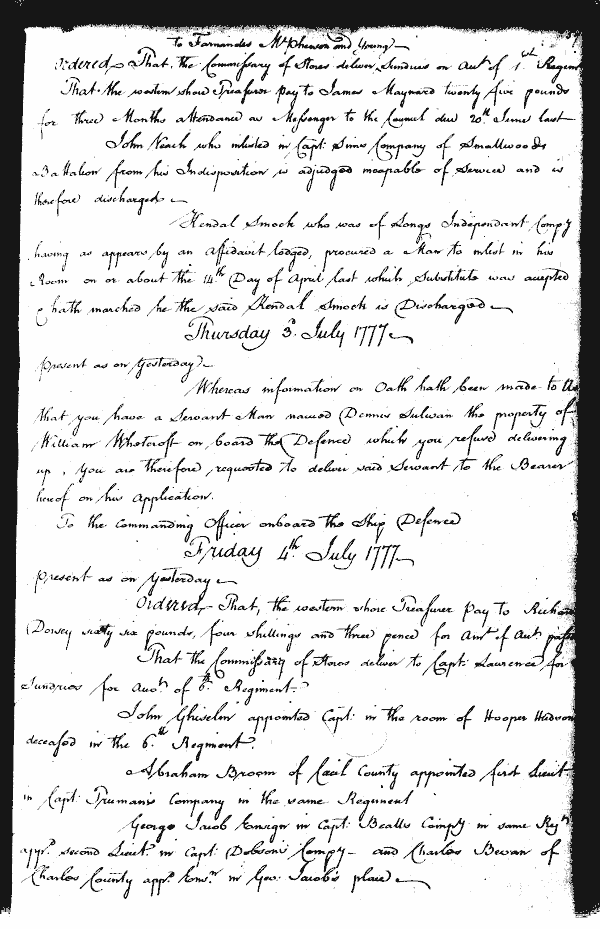 to Fernandes McPherson and Young
Ordered That, the Commissary of Stores deliver Sundries on Acct of 1st Regim
That the western shore Treasurer pay to James Maynard twenty five pounds
for three Months attendance as Messenger to the Council due 20th June last
John Veach who inlisted in Capt Sims Company of Smallwoods
Battalion from his Indisposition is adjudged incapable of Service and is
therefore discharged
Kendal Smock who was of Longs Independant Compy
having as appears by an Affidavit lodged, procured a Man to inlist in his
Room on or about the 14th Day of April last which Substitute was accepted
& hath marched he the said Kendal Smock is Discharged
Thursday 3d July 1777
present as on Yesterday
Whereas information on Oath hath been made to Us
that you have a Servant Man named Dennis Sulivan the property of
William Whetcroft on board the Defence which you refuse delivering
up, You are therefore requested to deliver said Servant to the Bearer
hereof on his application.
To the Commanding Officer onboard the Ship Defence
Friday 4th July 1777
present as on Yesterday
Ordered That, the western shore Treasurer pay to Richard
Dorsey sixty six pounds, four shillings and three pence for Amt of Acct passed
That the Commissary of Stores deliver to Capt. Laurence for
Sundries for Acct of 6th Regiment.
John Ghiselin appointed Capt. in the room of Hooper Hudson
deceased in the 6th Regiment.
Abraham Broom of Cecil County appointed first Lieut
in Capt. Trumans Company in the same Regiment
George Jacob Ensign in Capt. Bealls Compy in same Regt
app. second Lieut. in Capt. Dobsons Compy - and Charles Bevan of
Charles County app. Ensn in Geo. Jacobs place